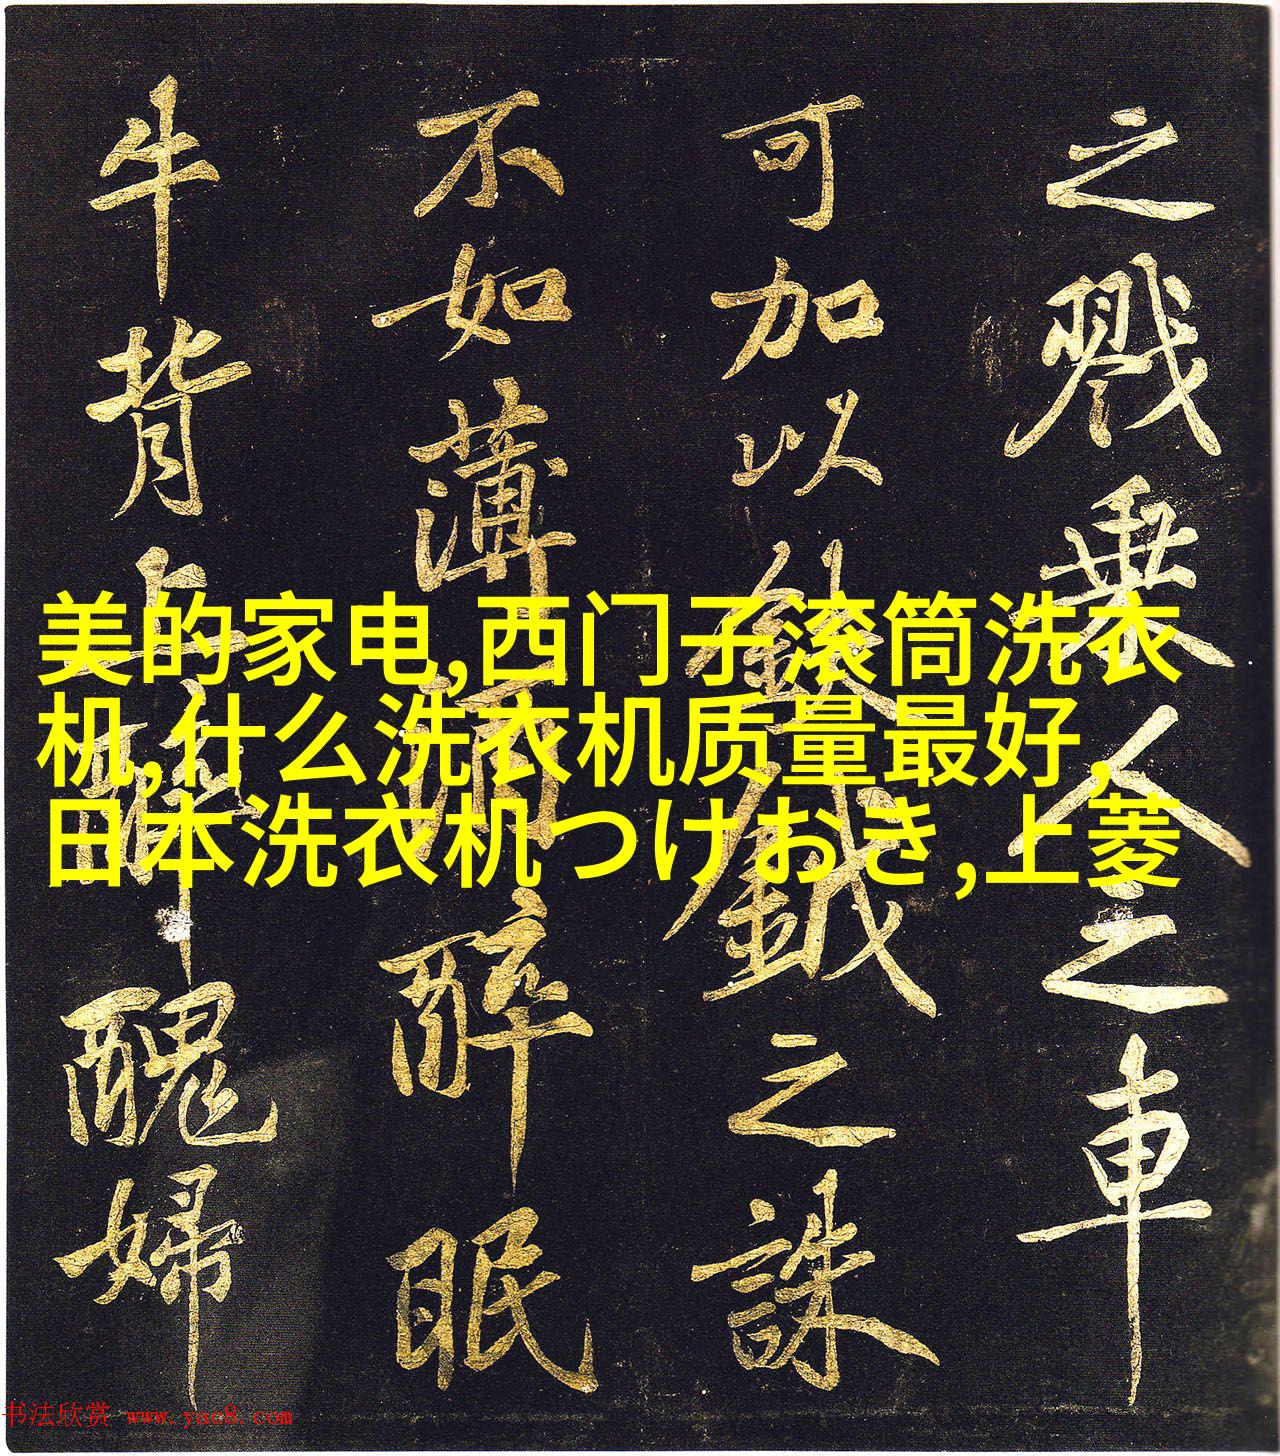 之戮乘人之車
可加以鈇鉞之誅
不如薄醉眠
牛背上醜婦
美的家电,西门子滚筒洗衣
机,什么洗衣机质量最好,
日本洗衣机つけおき,上菱
书法欣赏 www.yac8.com